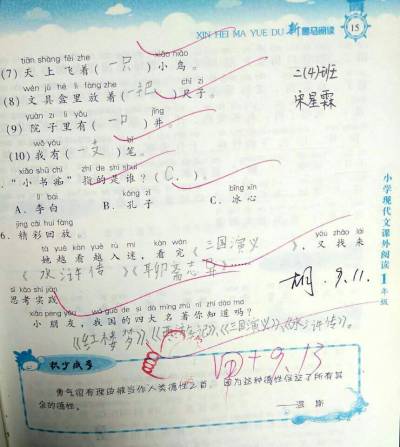 XIN HEI MA YUE DU 新黑马阅读 15
tiān shàng fēi zhe xiǎo niǎo
(7) 天上飞着(一只)小鸟。
wén jù hé lǐ fàng zhe chǐ zi
(8) 文具盒里放着(一把)尺子。
二(4)班
宋星霖
yuàn zi lǐ yǒu jǐng
(9) 院子里有(一口)井。
wǒ yǒu bǐ
(10) 我有(一支)笔。
xiǎo shū chī zhǐ de shì shuí
“小书痴”指的是谁?(C.)
lǐ bái kǒng zǐ bīng xīn
A. 李白 B. 孔子 C. 冰心
jīng cǎi huí fàng
6. 精彩回放。
tā yuè kàn yuè rù mí kàn wán yòu zhǎo lái
她越看越入迷,看完《三国演义》,又找来
《水浒传》《聊斋志异》……
sī kǎo shí jiàn
思考实践
胡.9.11.
xiǎo péng yǒu wǒ guó de sì dà míng zhù nǐ zhī dào ma
小朋友,我国的四大名著你知道吗?
《红楼梦》《西游记》《三国演义》《水浒传》。
小学现代文课外阅读 1年级
9.13
勇气很有理由被当作人类德性之首,因为这种德性保证了所有其
余的德性。